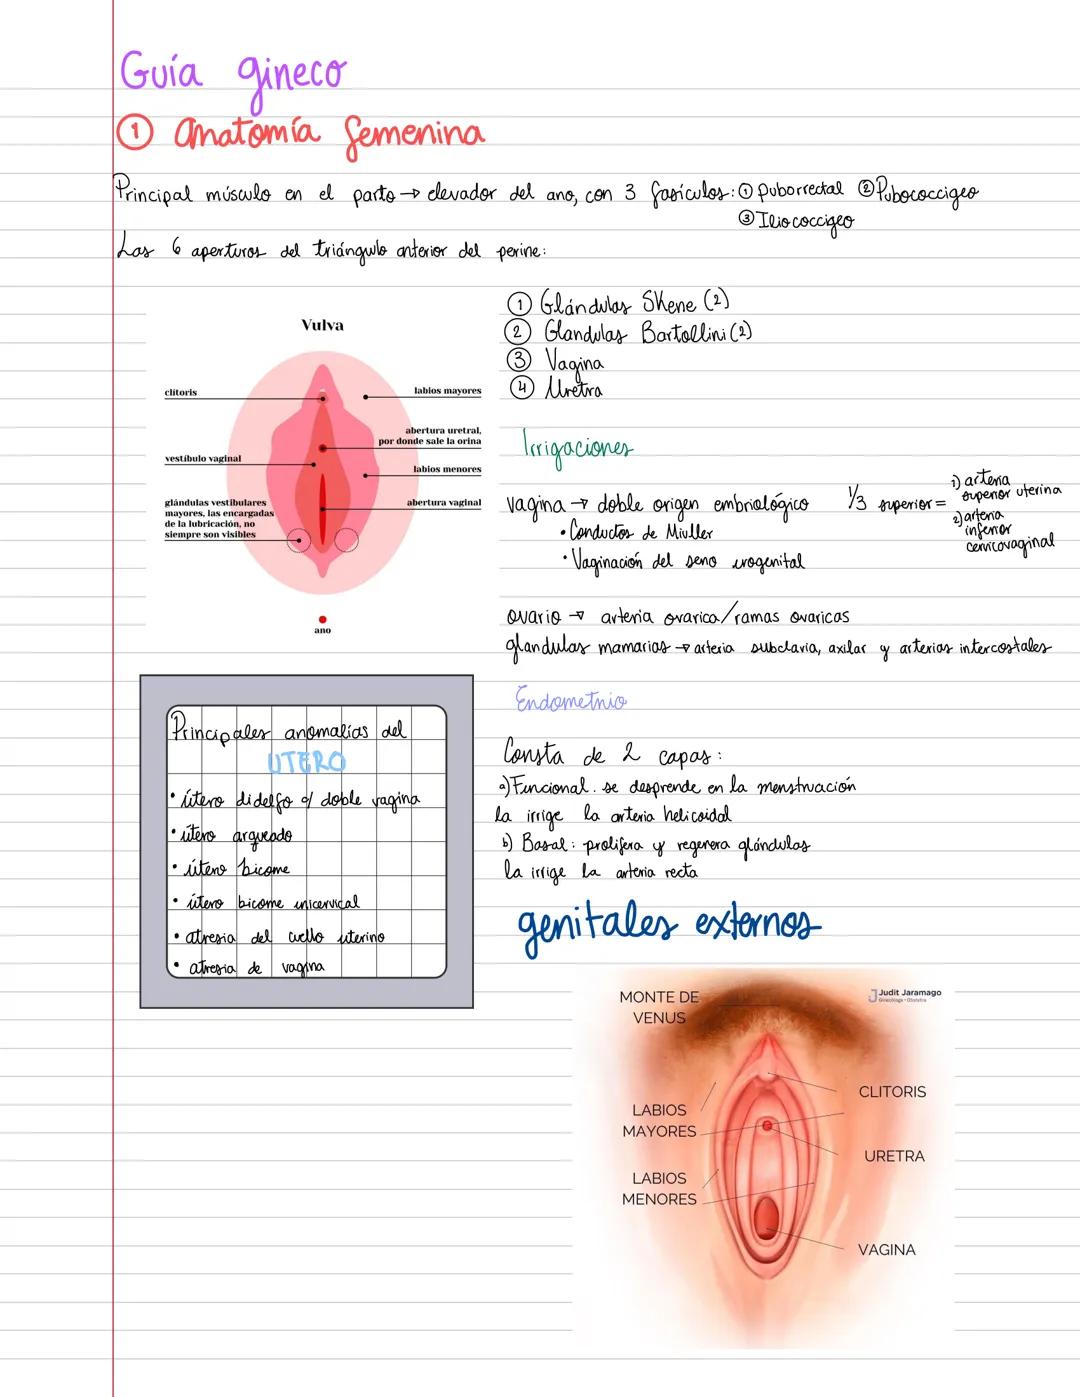 Guía gineco
① Anatomía femenina
Principal músculo en el parto → elevador del ano, con 3 fasículos: ① puborrectal ② Pubococcigeo
③ Iliococcigeo
Las 6 aperturas del triángulo anterior del perine:
① Glándulas Skene (2)
② Glandulas Bartollini (2)
③ Vagina
④ Uretra
Vulva
clítoris
labios mayores
abertura uretral,
por donde sale la orina
vestíbulo vaginal
labios menores
glándulas vestibulares
mayores, las encargadas
de la lubricación, no
siempre son visibles
abertura vaginal
ano
Irrigaciones
vagina → doble origen embriológico
• Conductos de Miuller
• Vaginación del seno urogenital
1/3 superior =
1) arteria
superior uterina
2) arteria
inferior
cervicovaginal
ovario → arteria ovarica/ramas ovaricas
glandulas mamarias → arteria subclavia, axilar y arterias intercostales
Principales anomalías del
UTERO
• útero didelfo c/ doble vagina
• útero arqueado
• útero bicorne
• útero bicorne unicervical
• atresia del cuello uterino
• atresia de vagina
Endometrio
Consta de 2 capas:
a) Funcional. se desprende en la menstruación
la irrige la arteria helicoidal
b) Basal: prolifera y regenera glándulas
la irrige la arteria recta
genitales externos
MONTE DE
VENUS
Judit Jaramago
Ginecóloga - Obstetra
CLITORIS
LABIOS
MAYORES
URETRA
LABIOS
MENORES
VAGINA